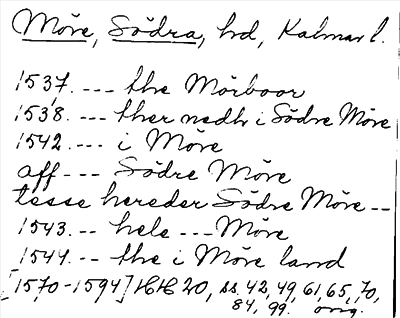 Möre, Södra, hd, Kalmar l.
1537. --- the Mörboar
1538. --- ther nedh i Södre Möre
1542. --- i Möre
aff --- Södre Möre
tesse hereder Södre Möre --
1543. -- hele --- Möre
1544. -- the i Möre land
[1570-1594] HH 20, ss. 42, 49, 61, 65, 70,
84, 99. orig.